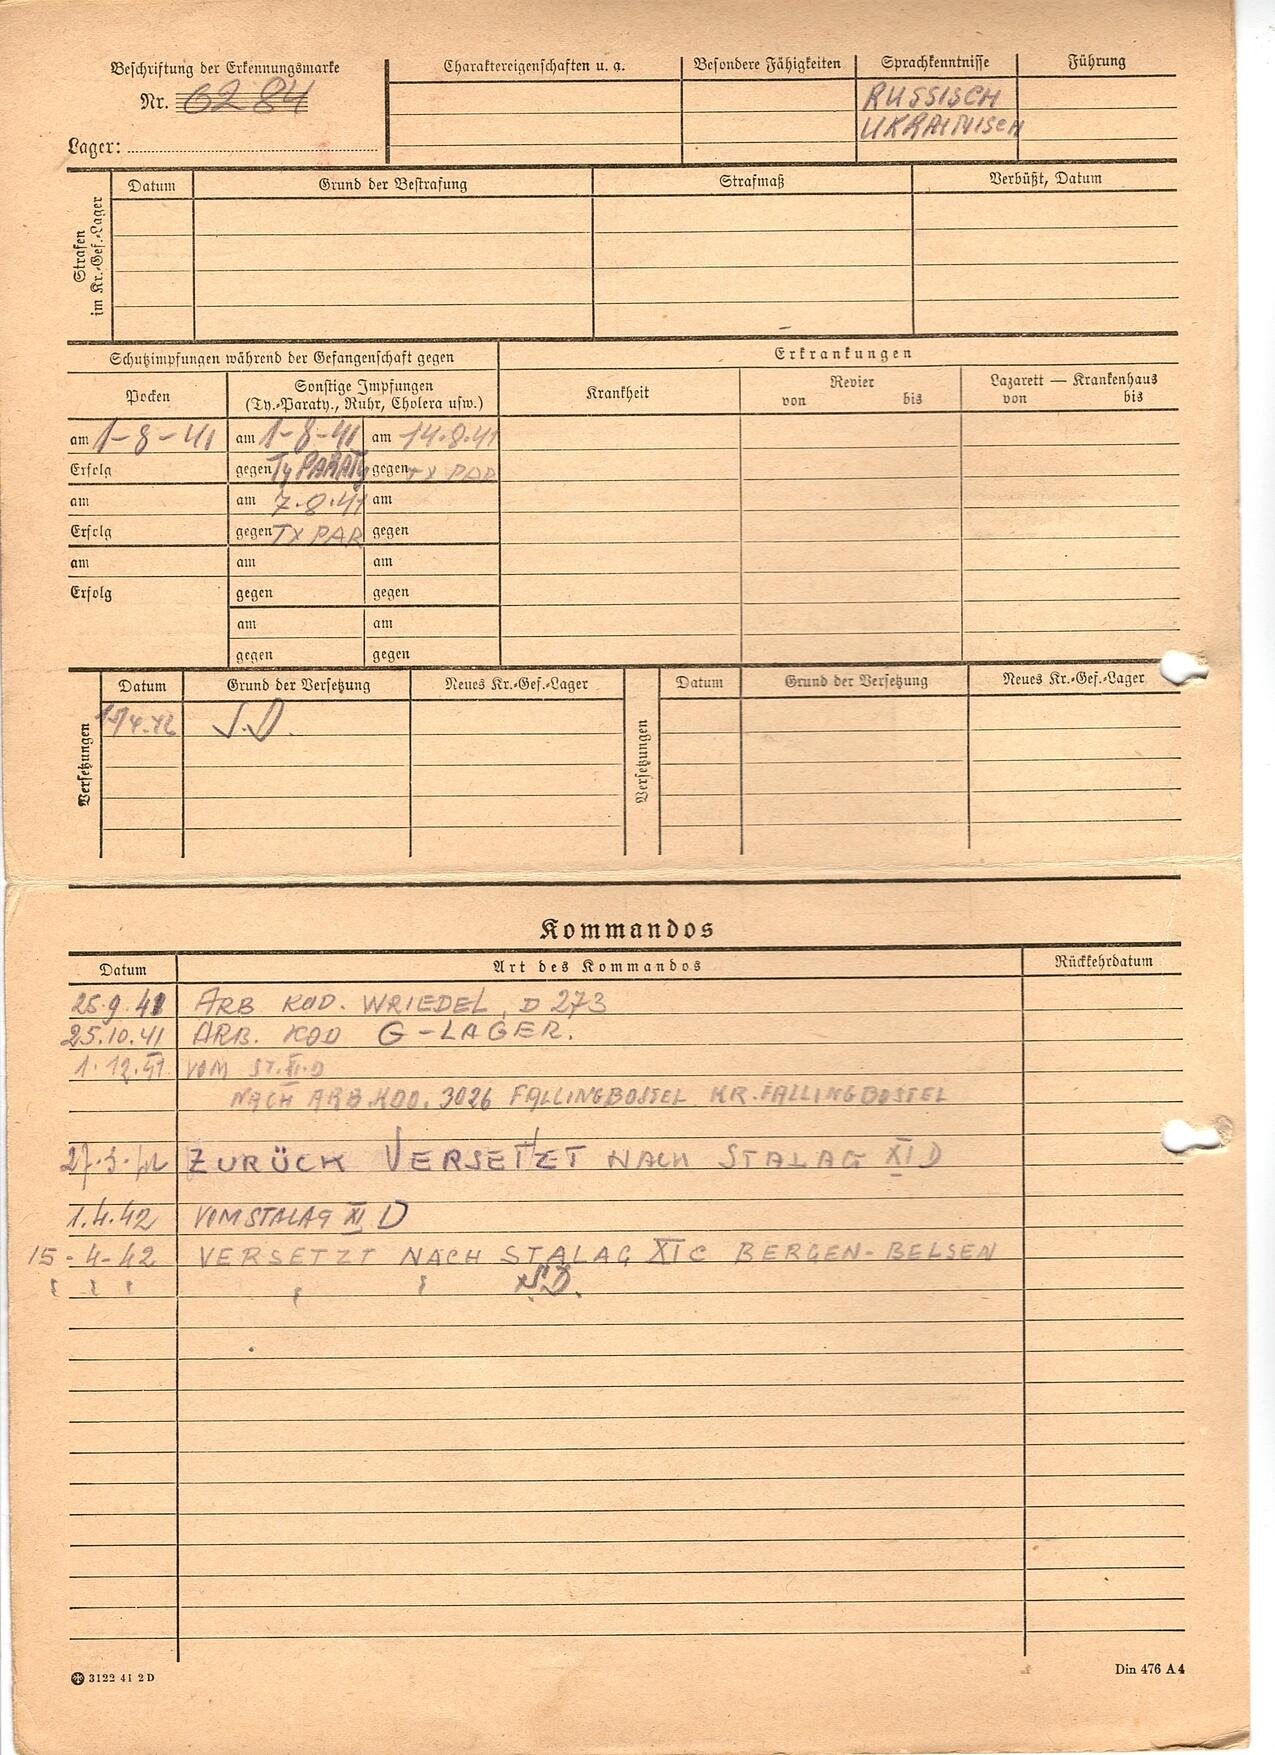 Beschriftung der Erkennungsmarke
Nr. 6284
Lager:
Charaktereigenschaften u. a.
Besondere Fähigkeiten
Sprachkenntnisse
Führung
RUSSISCH
UKRAINISCH
Strafen
im Kr.-Gef.-Lager
Datum
Grund der Bestrafung
Strafmaß
Verbüßt, Datum
Schutzimpfungen während der Gefangenschaft gegen
Erkrankungen
Pocken
Sonstige Impfungen
(Ty.-Paraty., Ruhr, Cholera usw.)
Krankheit
Revier
von bis
Lazarett — Krankenhaus
von bis
am 1-8-41 am 1-8-41 am 14.8.41
Erfolg gegen Ty PARATy gegen TY PAR
am am 7.8.41 am
Erfolg gegen TY PAR gegen
am am am
Erfolg gegen gegen
am am
gegen gegen
Versetzungen
Datum Grund der Versetzung Neues Kr.-Gef.-Lager
Versetzungen
Datum Grund der Versetzung Neues Kr.-Gef.-Lager
4.42 S.D.
Kommandos
Datum Art des Kommandos Rückkehrdatum
25.9.41 ARB KOD. WRIEDEL, D 273
25.10.41 ARB. KOD G-LAGER.
1.12.41 VOM ST.XI.D
NACH ARB.KOD. 3026 FALLINGBOSTEL KR.FALLINGBOSTEL
27.3.42 ZURÜCK VERSETZT NACH STALAG XI D
1.4.42 VOM STALAG XI D
15-4-42 VERSETZT NACH STALAG XI C BERGEN-BELSEN
S.D.
3122 41 2 D
Din 476 A 4